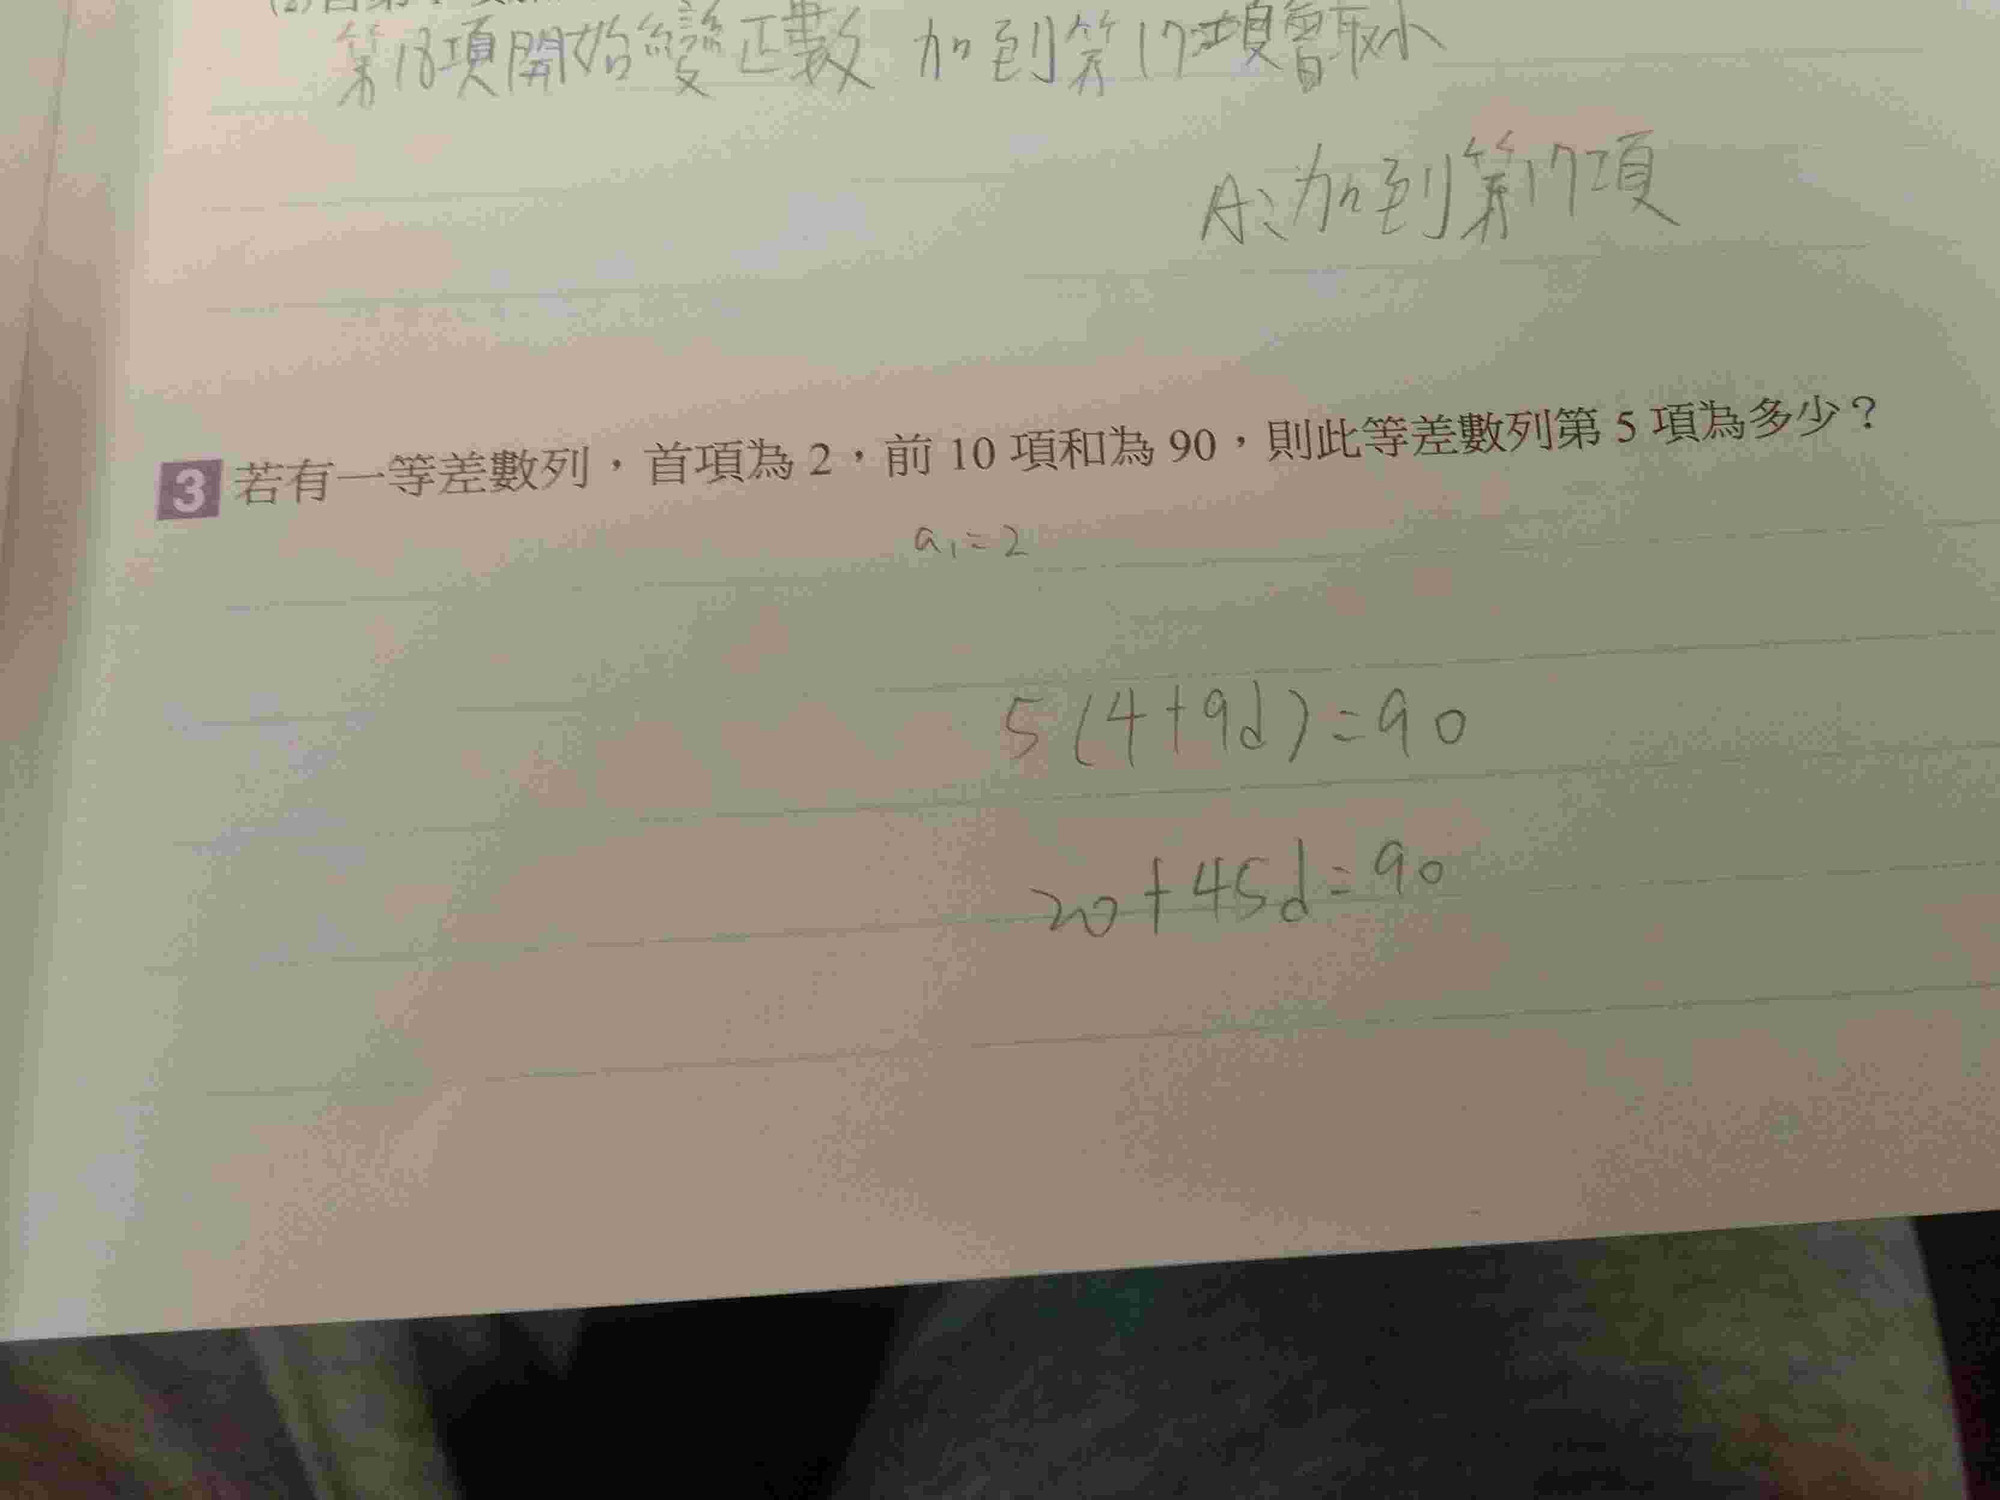 第18項開始變正數 加到第17項會最小
A:加到第17項
3 若有一等差數列，首項為 2，前 10 項和為 90，則此等差數列第 5 項為多少？
a₁=2
5(4+9d)=90
20+45d=90